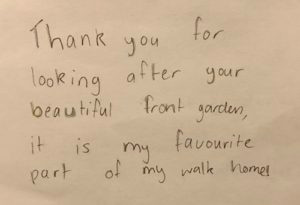 Thank you for
looking after your
beautiful front garden,
it is my favourite
part of my walk home!